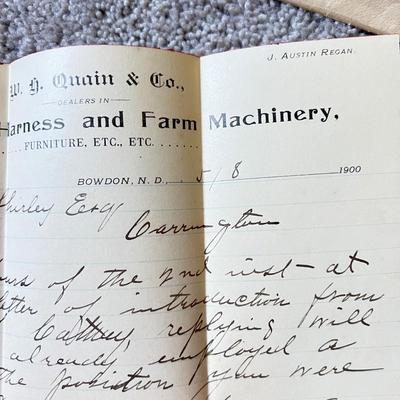 J. Austin Regan.
W. H. Quain & Co.,
DEALERS IN
Harness and Farm Machinery,
FURNITURE, ETC., ETC.
BOWDON, N. D., 5/8 1900
Shirley Esq
Carrington
ours of the 2nd inst — at
letter of introduction from
replying will
already employed a
The position you were